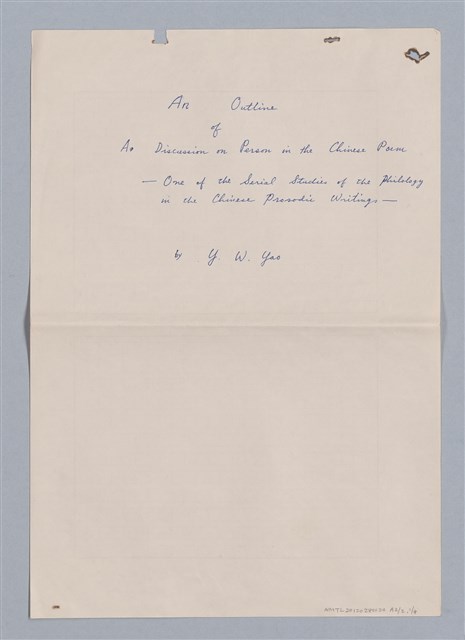 An Outline
of
A Discussion on Person in the Chinese Poem
— One of the Serial Studies of the Philology
in the Chinese Prosodic Writings —
by Y. W. Yao